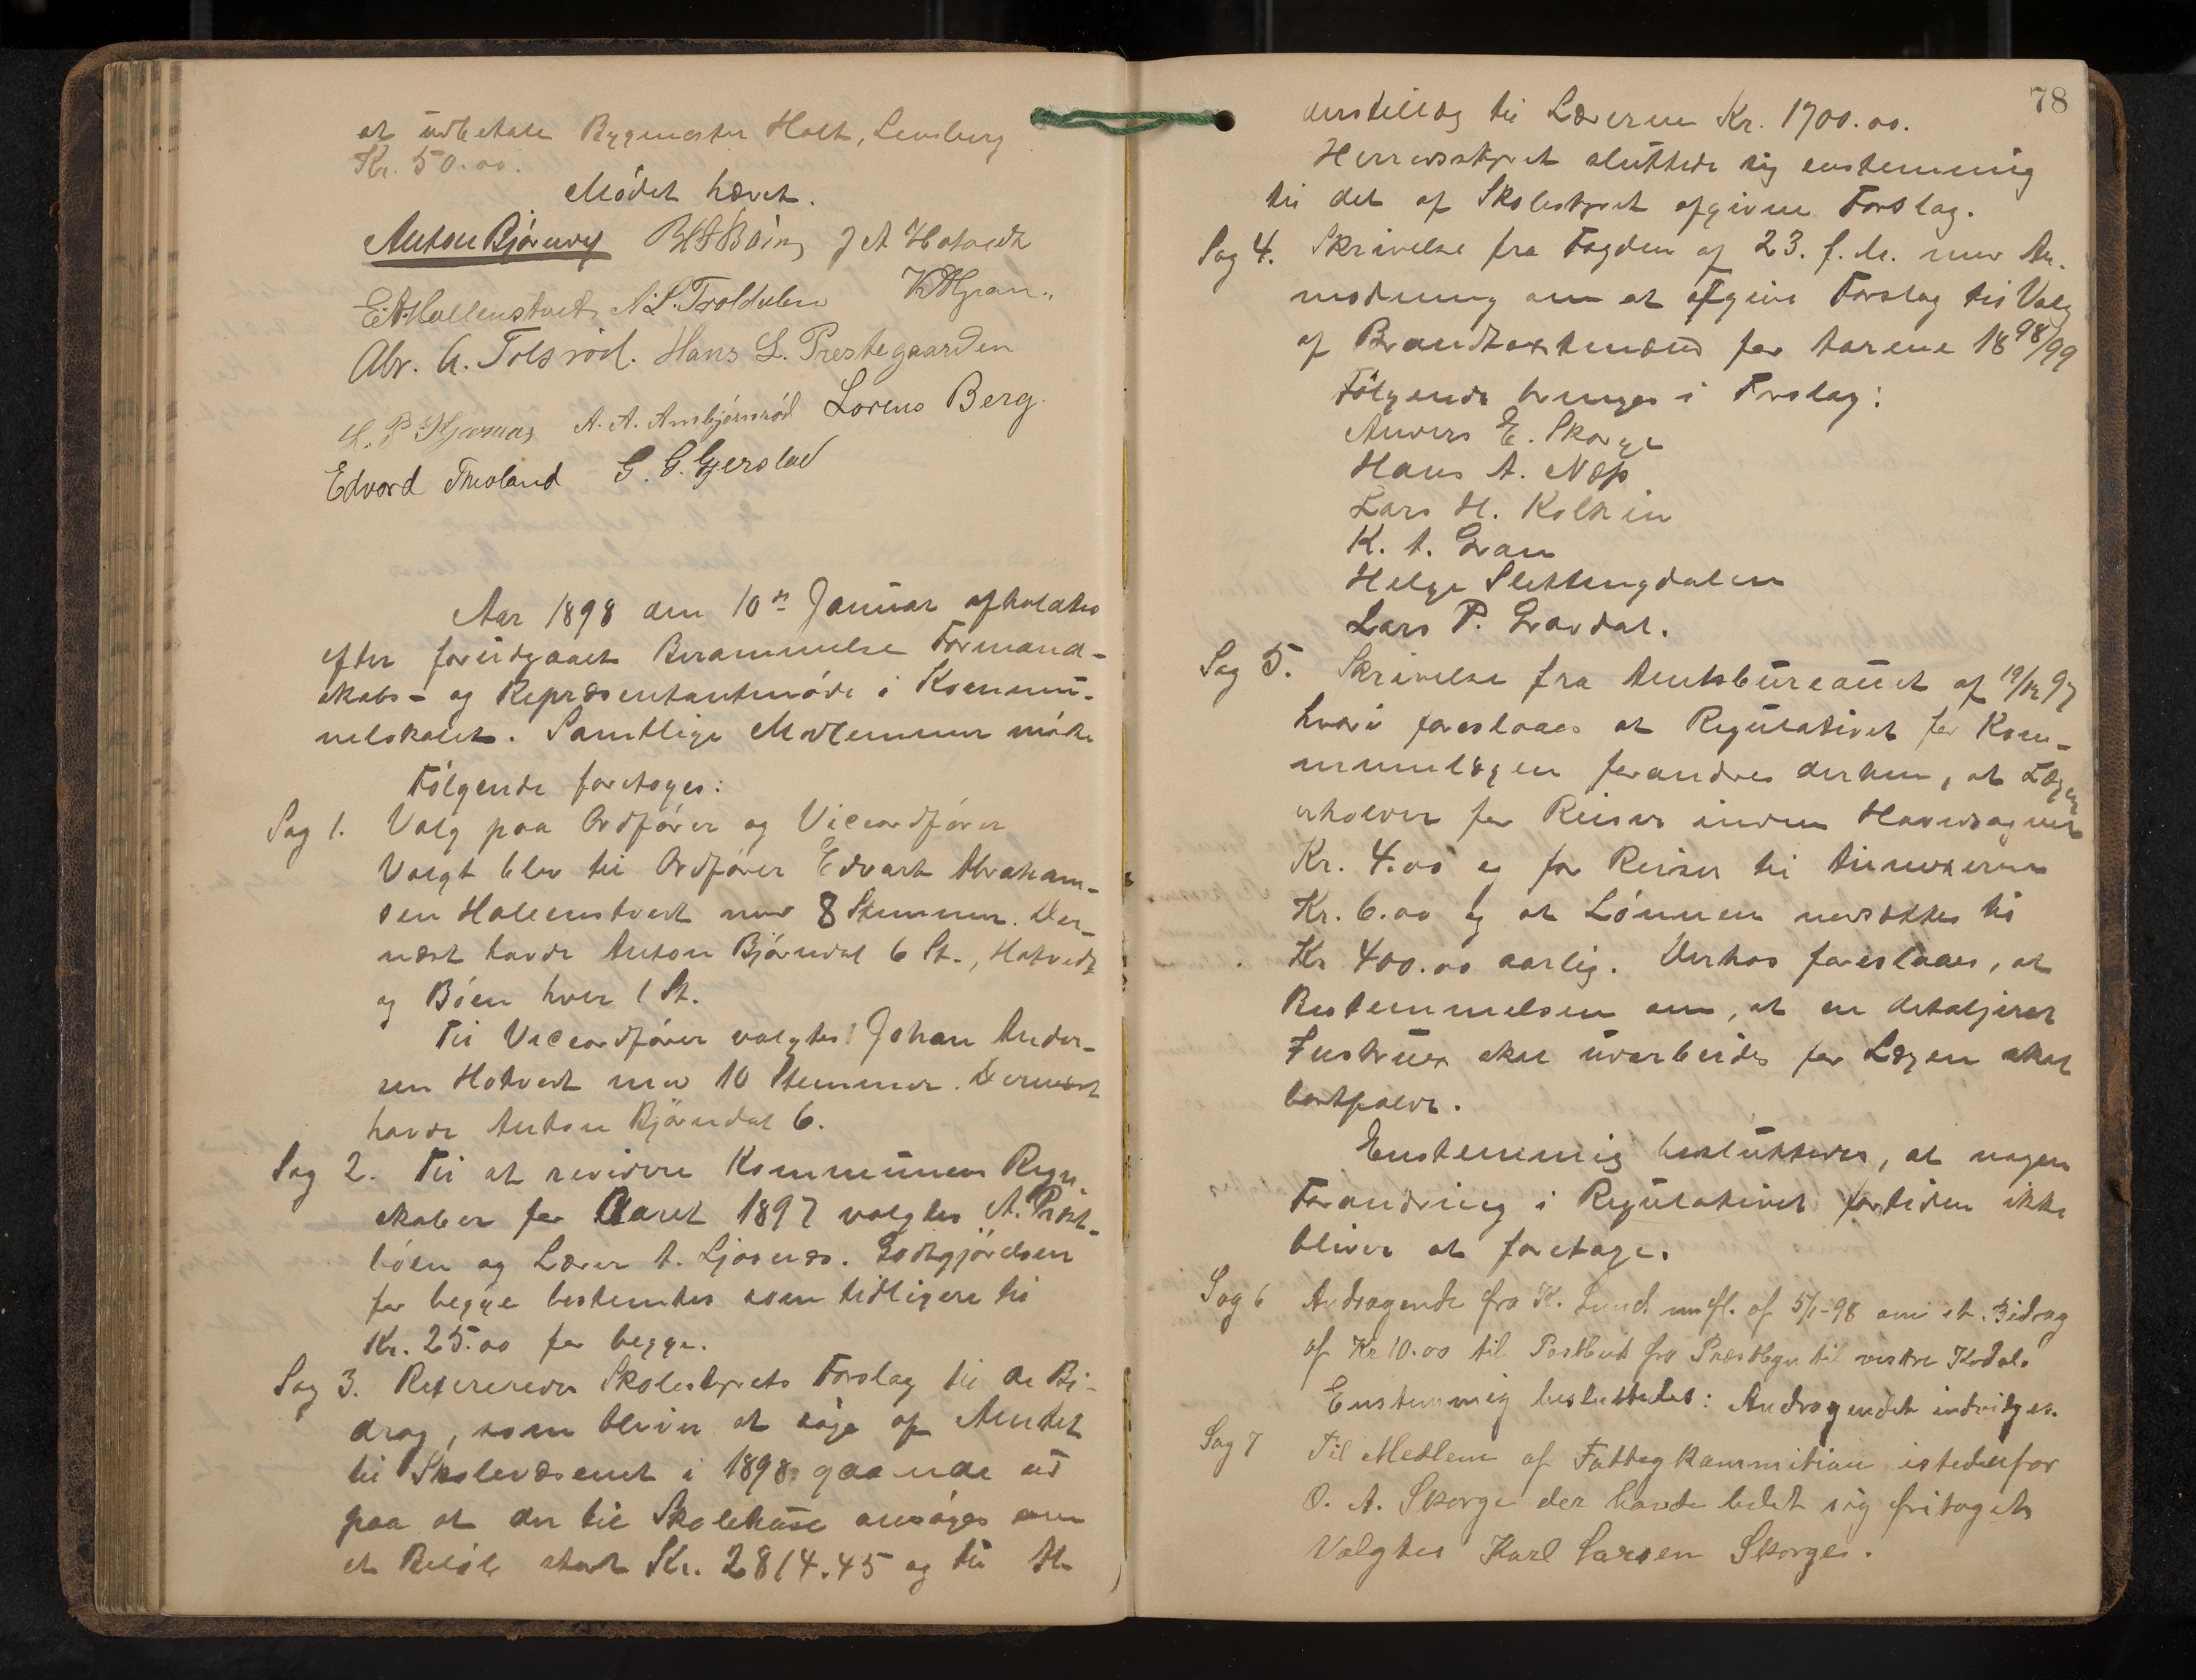 at udbetale Bygmester Holt, Lensberg
Kr. 50.00.
Mødet hævet.
Anton Bjørndal H S Bøen J A Hotvedt
E. A. Hallenstvet N. L. Troldalen K A Gran
Abr. A. Tolsrød. Hans L. Prestegaarden
L. P. Gjernæs A. A. Ambjørnsrød Lorens Berg.
Edvard Trevland G. G. Gjerstad
Aar 1898 den 10de Januar afholdtes
efter foreudgaaet Berammelse Formand-
skabs- og Repræsentantmøde i Kommu-
nelokalet. Samtlige Medlemmer mødte
Følgende foretoges:
Sag 1. Valg paa Ordfører og Viceordfører
Valgt blev til Ordfører Edvart Abraham-
sen Hallenstvedt med 8 Stemmer. Der-
næst havde Anton Bjørndal 6 St., Hotvedt
og Bøen hver 1 St.
Til Viceordfører valgtes: Johan Ander-
sen Hotvedt med 10 Stemmer. Dernæst
havde Anton Bjørndal 6.
Sag 2. Til at revidere Kommunens Regn-
skaber for Aaret 1897 valgtes A. Præst-
bøen og Lærer A. Ljosnæs. Godtgjørelsen
for begge bestemtes som tidligere til
Kr. 25.00 for begge.
Sag 3. Refereredes Skolestyrets Forslag til de Bi-
drag, som bliver at søge af Amtet
til Skolevæsenet i 1898 gaaende ud
paa at der til Skolehuse ansøges om
et Beløb stort Kr. 2814.45 og til Al-
78
derstillæg til Lærerne Kr. 1700.00.
Herredsstyret sluttede sig enstemmig
til det af Skolestyret afgivne Forslag.
Sag 4. Skrivelse fra Fogden af 23. f. M. med An-
modning om at afgive Forslag til Valg
af Brandtaxtmænd for Aarene 1898/99
Følgende bringes i Forslag:
Anders E. Skorge
Hans A. Næss
Lars H. Kolkin
K. A. Gran
Helge Slettingdalen
Lars P. Gravdal.
Sag 5. Skrivelse fra Amtsbureauet af 19/12 97
hvori foreslaaes at Regulativet for Kom-
munelægen forandres derhen, at Lægen
erholder for Reiser inden Hovedsognet
Kr. 4.00 og for Reiser til Annexerne
Kr. 6.00 og at Lønnen nedsættes til
Kr 400.00 aarlig. Derhos foreslaaes, at
Bestemmelsen om, at en detaljeret
Instrux skal udarbeides for Lægen skal
bortfalde.
Enstemmig besluttedes, at nogen
Forandring i Regulativet fortiden ikke
bliver at foretage.
Sag 6 Andragende fra K. Lund m fl. af 5/1-98 om et Bidrag
af Kr 10.00 til Postbud fra Præstbyen til vestre Kodal.
Enstemmig besluttedes: Andragendet indvilges.
Sag 7 Til Medlem af Fattigkommition istedenfor
O. A. Skorge der havde bedet sig fritaget
Valgtes Karl Larsen Skorge.